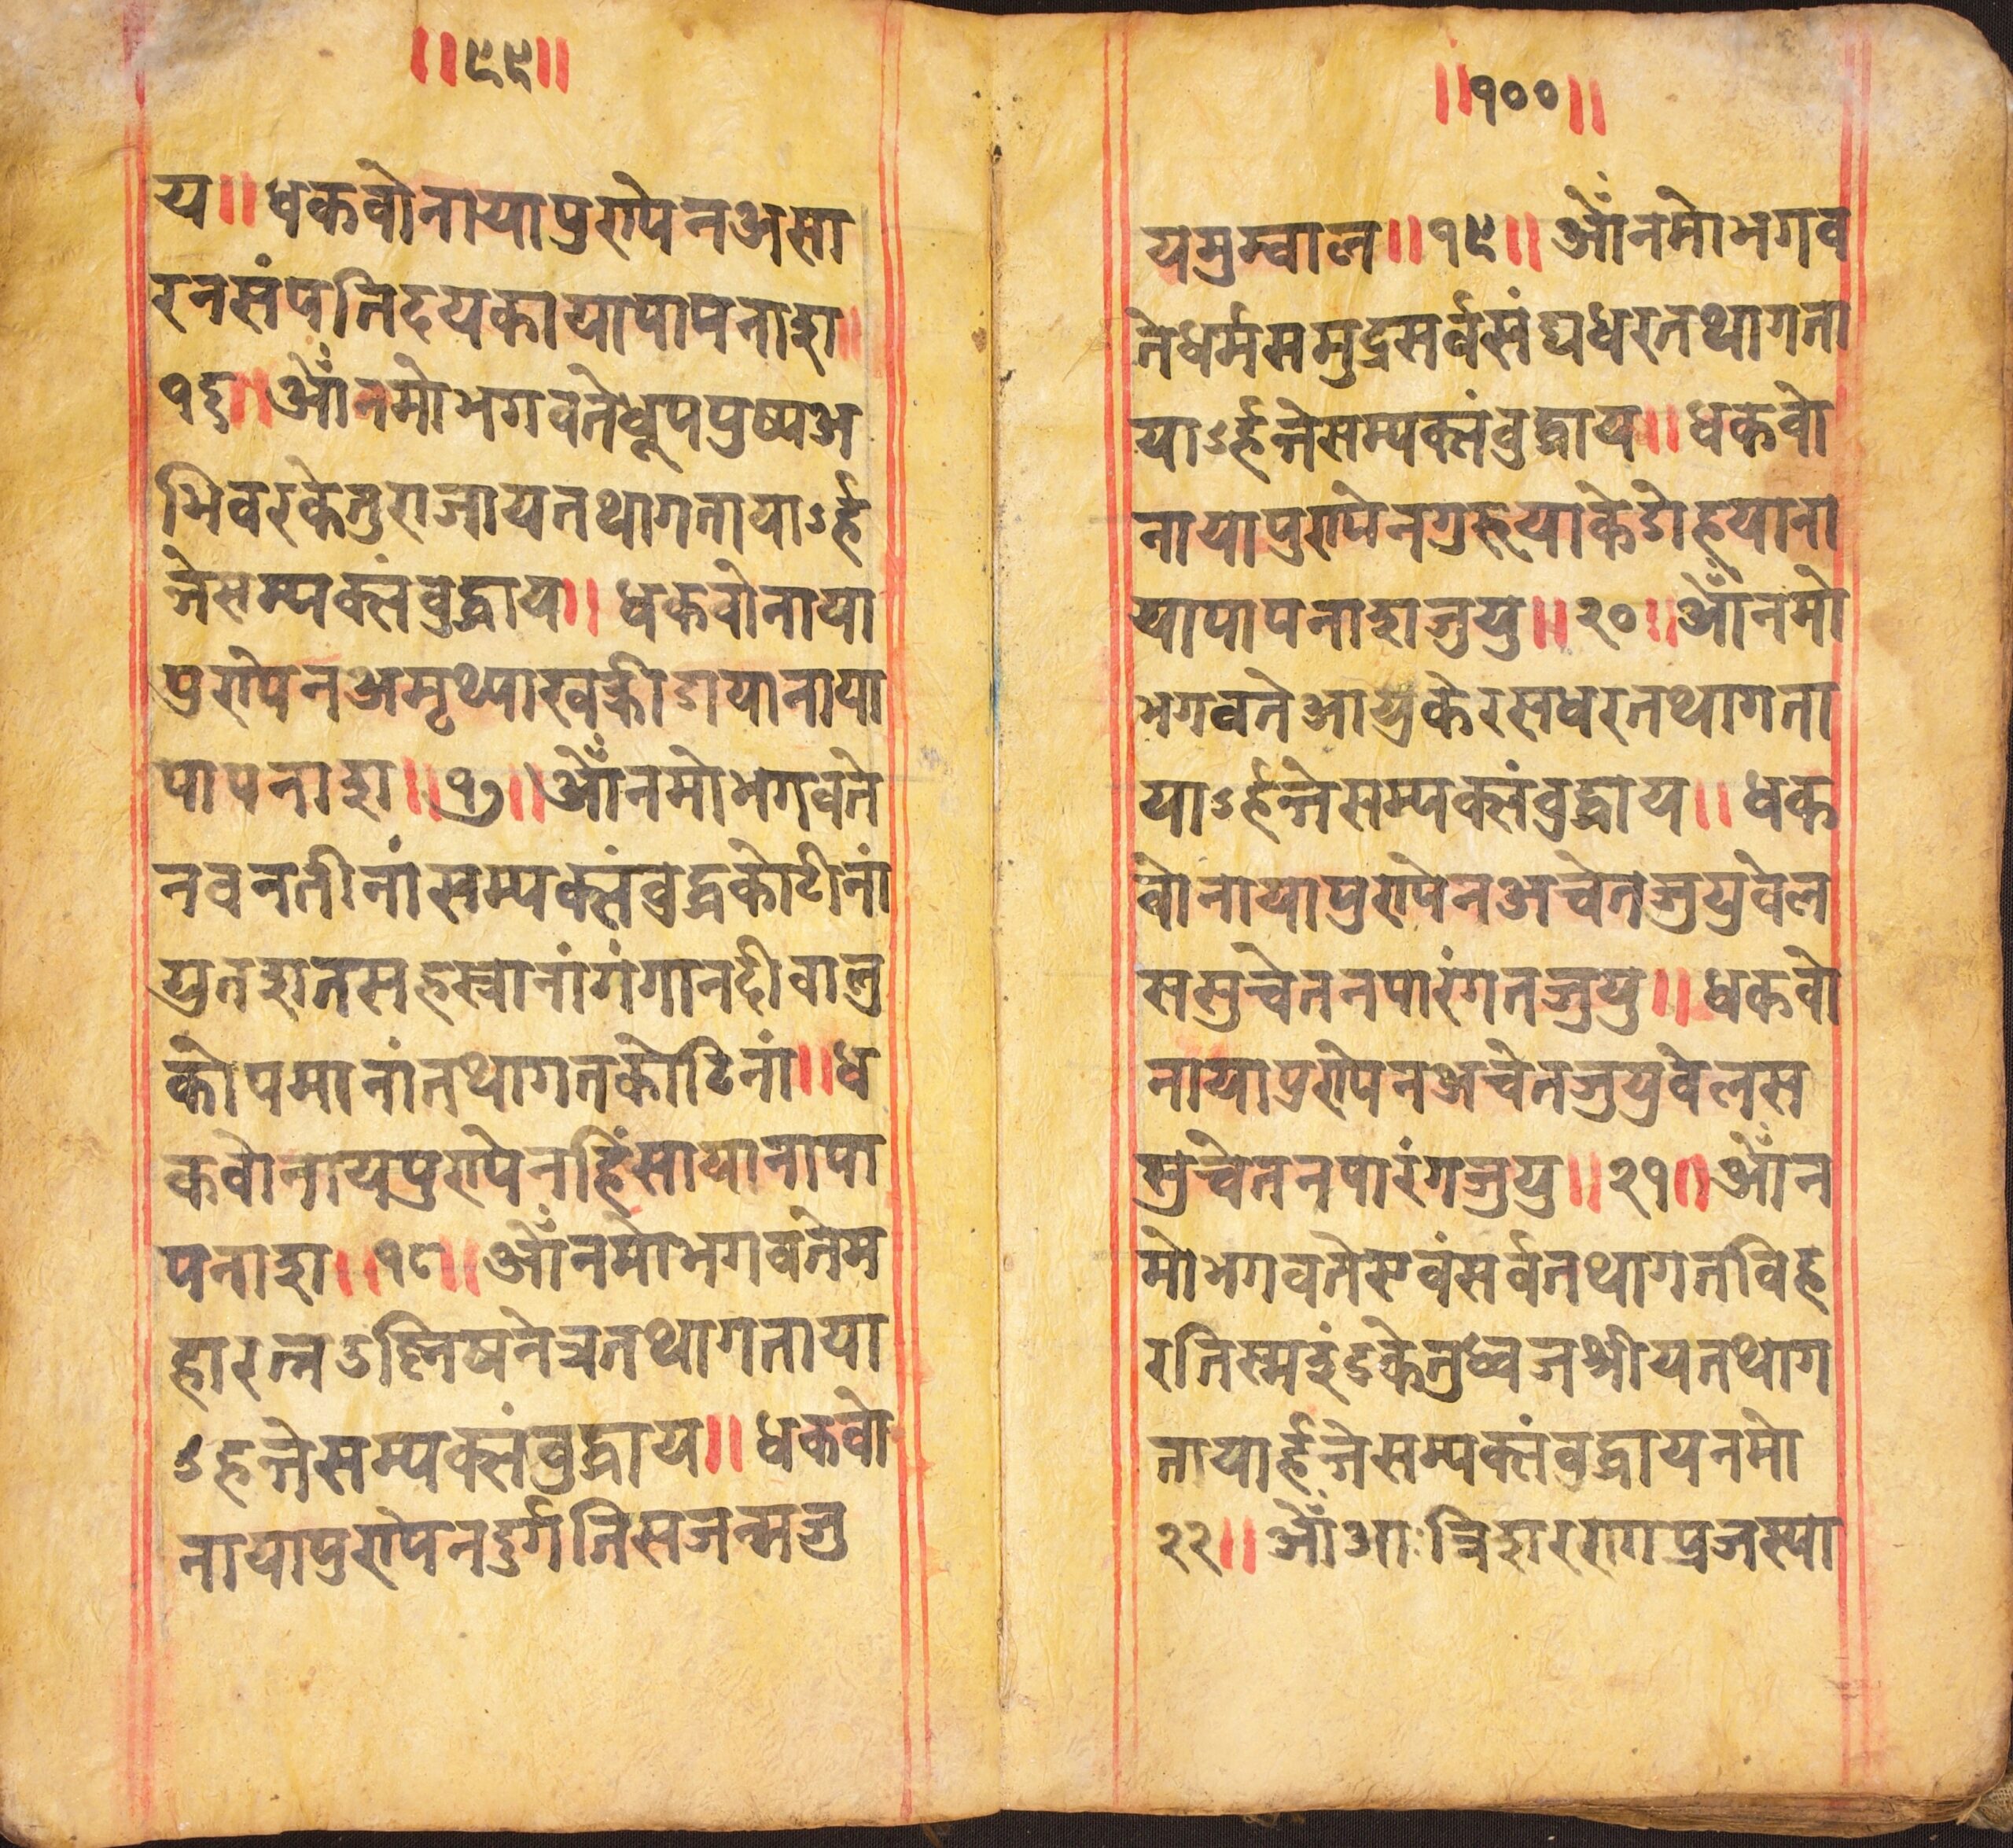 ॥९९॥
य॥धकवोनायापुरुषेनअसा
रनसंपतिदयकायापापनाश॥
१६॥ओँनमोभगवतेधूपपुष्पअ
भिवरकेतुराजायतथागतायाऽर्ह
न्तेसम्यक्संबुद्धाय॥धकवोनाया
पुरुषेनअमृथ्याखक्रीडायानाया
पापनाश॥१७॥ओँनमोभगवते
नवनतीनांसम्यक्संबुद्धकोटीनां
युतशतसहस्त्रानांगंगानदीवालु
कोपमानांतथागतकोटिनां॥ध
कवोनायपुरुषेनहिंसायानापा
पनाश॥१८॥ओँनमोभगवतेम
हारत्नऽश्निषनेत्रतथागताया
ऽहन्तेसम्यक्संबुद्धाय॥धकवो
नायापुरुषेनदुर्गतिसजन्मजु
॥१००॥
यमुम्वाल॥१९॥ओँनमोभगव
तेधर्मसमुद्रसर्वसंद्यधरतथागता
याऽर्हन्तेसम्यक्संबुद्धाय॥धकवो
नायापुरुषेनगुरुयाकेडोहयाना
यापापनाशजुयु॥२०॥ओँनमो
भगवतेआयुकेरसधरतथागता
याऽर्हन्तेसम्यक्संबुद्धाय॥धक
वोनायापुरुषेनअचेतजुयुवेल
ससुचेतनपारंगतजुयु॥धकवो
नायापुरुषेनअचेतजुयुवेलस
सुचेतनपारंगजुयु॥२१॥ओँन
मोभगवतेस्वंसर्वतथागतविह
रतिस्मइंऽकेतुध्वजश्रीयतथाग
तायार्हन्तेसम्यक्संबुद्धायनमो
२२॥ओँआःत्रिशररागप्रजस्पा